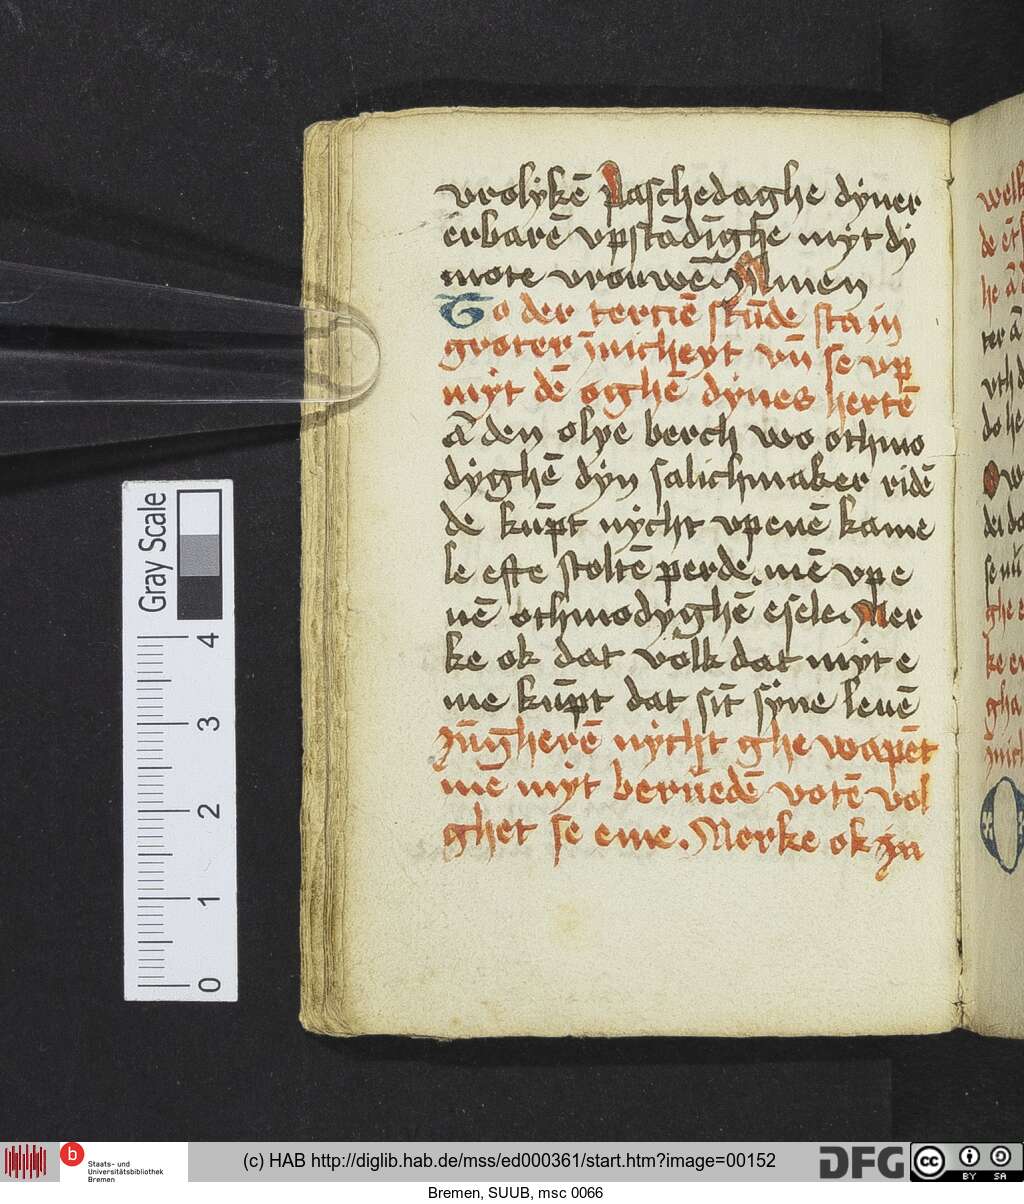 vrolykē Paschedaghe dyner
erbarē vpstādīghe myt dy
mote vrouwē. Amen
To der terciē stūde sta in
groter īnicheyt vn̄ se vp
myt dē oghē dynes hertē
ā den olye berch wo othmo
dyghē dyn salichmaker ridē
de kūpt nycht vpenē kame
le efte stoltē perde. mē vp e
nē othmodyghē esele. Mer
ke ok dat volk dat myt e
me kūpt dat sīt syne leuē
jūgherē nycht ghe wapēt
mē myt beruedē votē vol
ghet se eme. Merke ok jn
welk
de
he
ter
vth d
do he
dei do
ghe e
ke en
gha
Gray Scale
4
3
2
1
0
b
Staats- und
Universitätsbibliothek
Bremen
(c) HAB http://diglib.hab.de/mss/ed000361/start.htm?image=00152
DFG
cc
BY SA
Bremen, SUUB, msc 0066